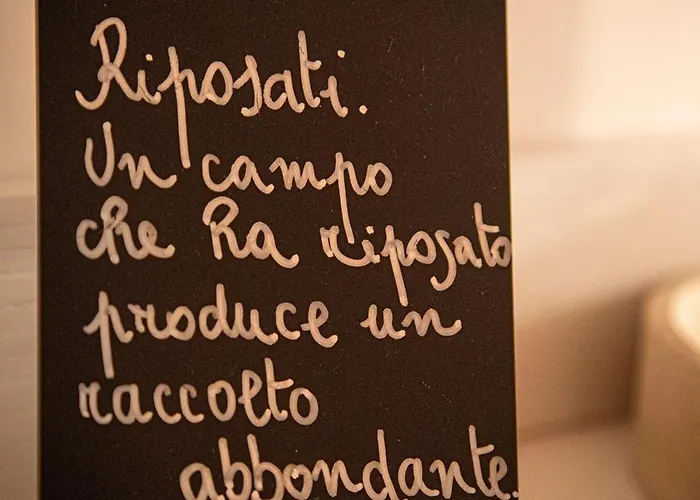 Riposati.
Un campo
che ha riposato
produce un
raccolto
abbondante.